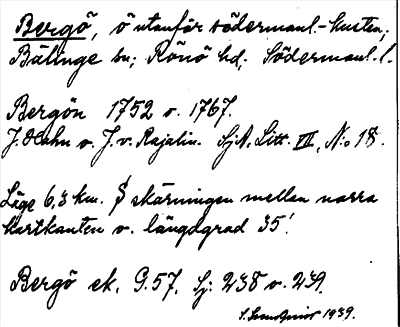 Bergö, ö utanför södermanl.-kusten,
Bälinge sn; Rönö hd, Södermanl. l.
Bergön 1752 o. 1767.
J. Hahn o. J. v. Rajalin. SjA. Litt. III, N:o 18.
Läge 6,3 km. S skärningen mellan norra
kartkanten o. längdgrad 35'.
Bergö ek. G.57. Sj: 238 o. 239.
1939.